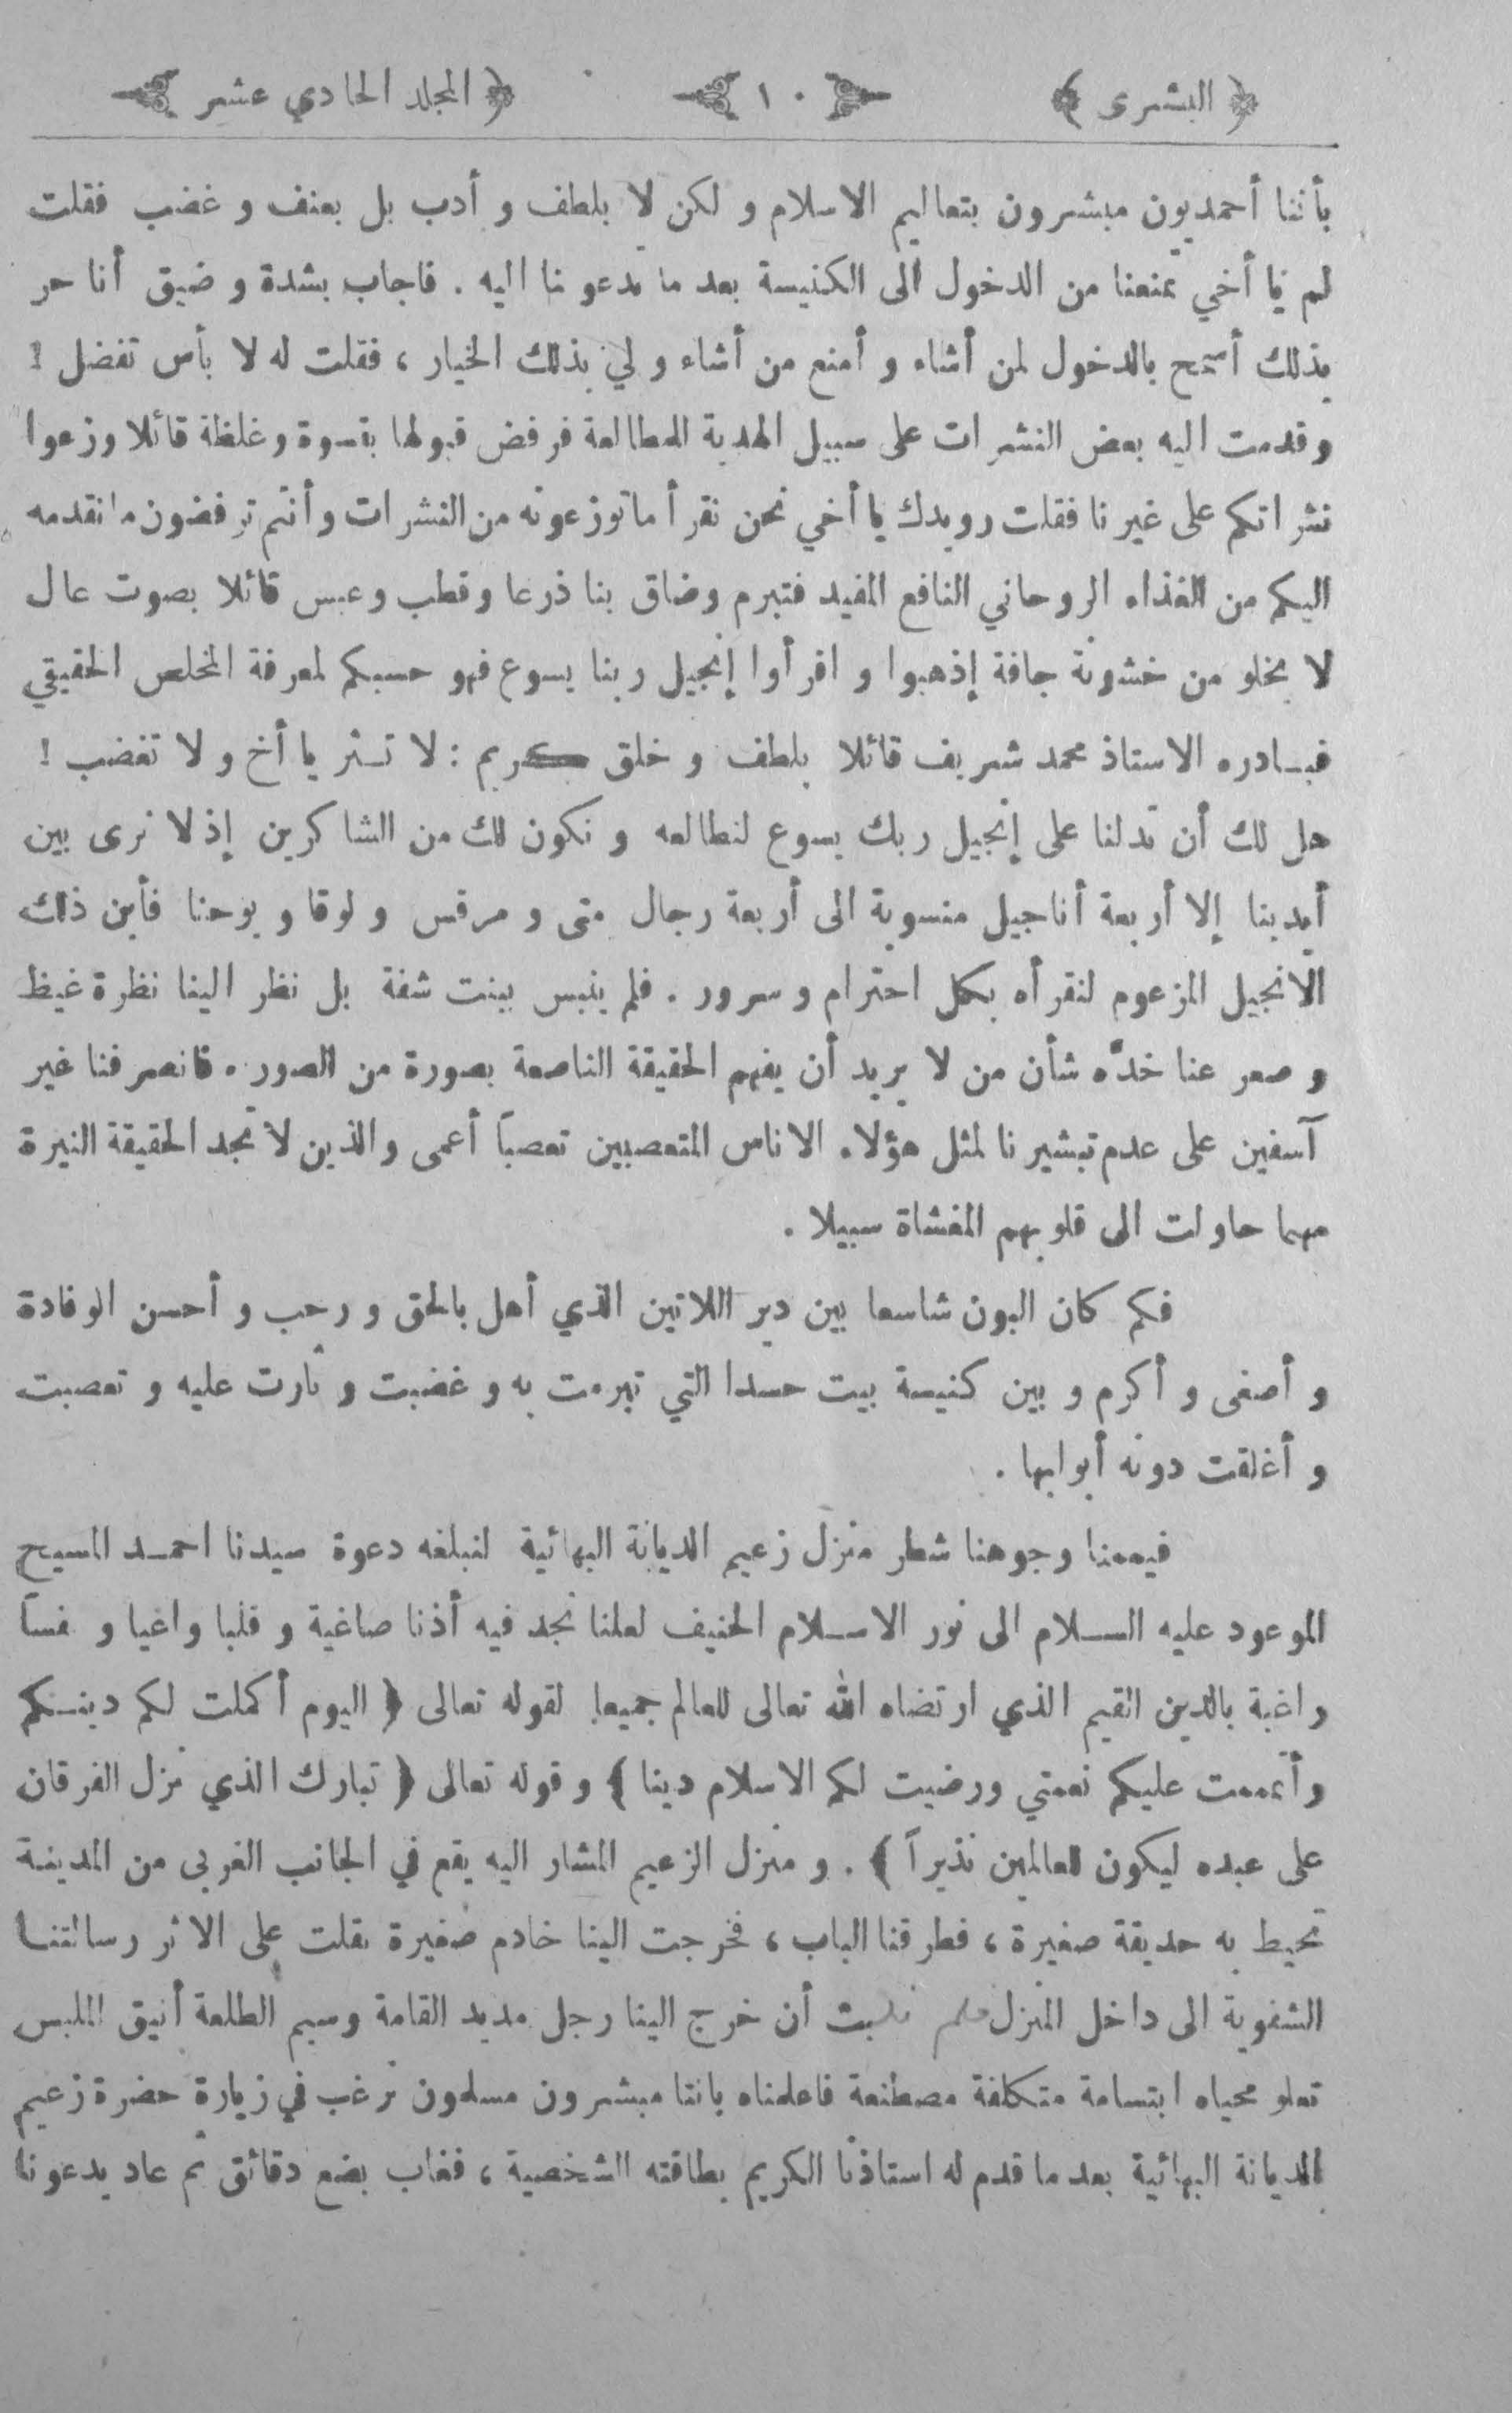 ﴿ البشرى ﴾ ١٠ ﴿ المجلد الحادي عشر ﴾
بأننا أحمديون مبشرون بتعاليم الاسلام و لكن لا بلطف و أدب بل بعنف و غضب فقلت
لم يا أخي تمنعنا من الدخول الى الكنيسة بعد ما تدعونا اليه . فاجاب بشدة و ضيق أنا حر
بذلك أسمح بالدخول لمن أشاء و أمنع من أشاء و لي بذلك الخيار ، فقلت له لا بأس تفضل !
وقدمت اليه بعض النشرات على سبيل الهدية للمطالعة فرفض قبولها بقسوة وغلظة قائلا وزعوا
نشراتكم على غيرنا فقلت رويدك يا أخي نحن نقرأ ما توزعونه من النشرات وأنتم ترفضون ما نقدمه
اليكم من الغذاء الروحاني النافع المفيد فتبرم وضاق بنا ذرعا وقطب وعبس قائلا بصوت عال
لا يخلو من خشونة جافة إذهبوا و اقرأوا إنجيل ربنا يسوع فهو حسبكم لمعرفة المخلص الحقيقي
فبادره الاستاذ محمد شريف قائلا بلطف و خلق كريم : لا تثر يا أخ و لا تغضب !
هل لك أن تدلنا على إنجيل ربك يسوع لنطالعه و نكون لك من الشاكرين إذ لا نرى بين
أيدينا إلا أربعة أناجيل منسوبة الى أربعة رجال متى و مرقس و لوقا و يوحنا فأين ذلك
الانجيل المزعوم لنقرأه بكل احترام و سرور . فلم ينبس ببنت شفة بل نظر الينا نظرة غيظ
و صعر عنا خدّه شأن من لا يريد أن يفهم الحقيقة الناصعة بصورة من الصور . فانصرفنا غير
آسفين على عدم تبشيرنا لمثل هؤلاء الاناس المتعصبين تعصباً أعمى والذين لا تجد الحقيقة النيرة
مهما حاولت الى قلوبهم المغشاة سبيلا .
فكم كان البون شاسعا بين دير اللاتين الذي أهل بالحق و رحب و أحسن الوفادة
و أصغى و أكرم و بين كنيسة بيت حسدا التي تبرمت به و غضبت و ثارت عليه و تعصبت
و أغلقت دونه أبوابها .
فيممنا وجوهنا شطر منزل زعيم الديانة البهائية لنبلغه دعوة سيدنا احمد المسيح
الموعود عليه السلام الى نور الاسلام الحنيف لعلنا نجد فيه أذنا صاغية و قلبا واعيا و نفساً
راغبة بالدين القيم الذي ارتضاه الله تعالى للعالم جميعا لقوله تعالى ﴿ اليوم أكملت لكم دينكم
وأتممت عليكم نعمتي ورضيت لكم الاسلام دينا ﴾ و قوله تعالى ﴿ تبارك الذي نزل الفرقان
على عبده ليكون للعالمين نذيراً ﴾ . و منزل الزعيم المشار اليه يقع في الجانب الغربي من المدينة
تحيط به حديقة صغيرة ، فطرقنا الباب ، فخرجت الينا خادم صغيرة نقلت على الاثر رسالتنا
الشفوية الى داخل المنزل فلم نلبث أن خرج الينا رجل مديد القامة وسيم الطلعة أنيق الملبس
تعلو محياه ابتسامة متكلفة مصطنعة فاعلمناه باننا مبشرون مسلمون نرغب في زيارة حضرة زعيم
الديانة البهائية بعد ما قدم له استاذنا الكريم بطاقته الشخصية ، فغاب بضع دقائق ثم عاد يدعونا